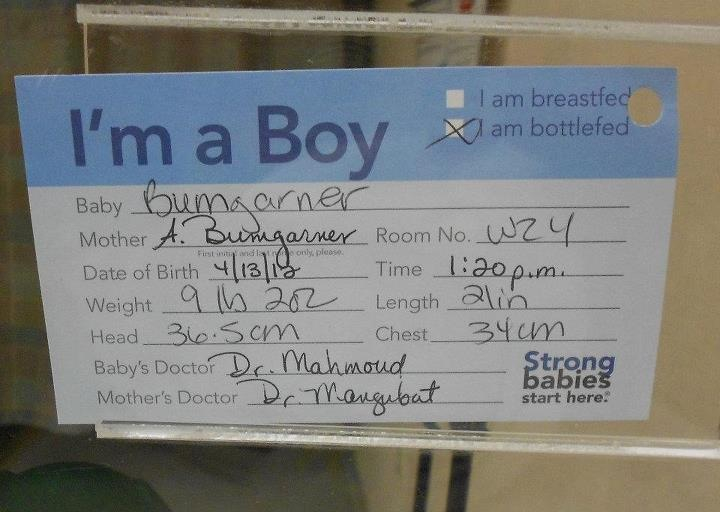 I am breastfed
I'm a Boy
I am bottlefed
Baby Bumgarner
Mother A. Bumgarner Room No. W24
First initial and last name only, please.
Date of Birth 4/13/12 Time 1:20 p.m.
Weight 9 lb 2oz Length 21in
Head 36.5cm Chest 34cm
Baby's Doctor Dr. Mahmoud
Mother's Doctor Dr. Mangubat
Strong
babies
start here.®